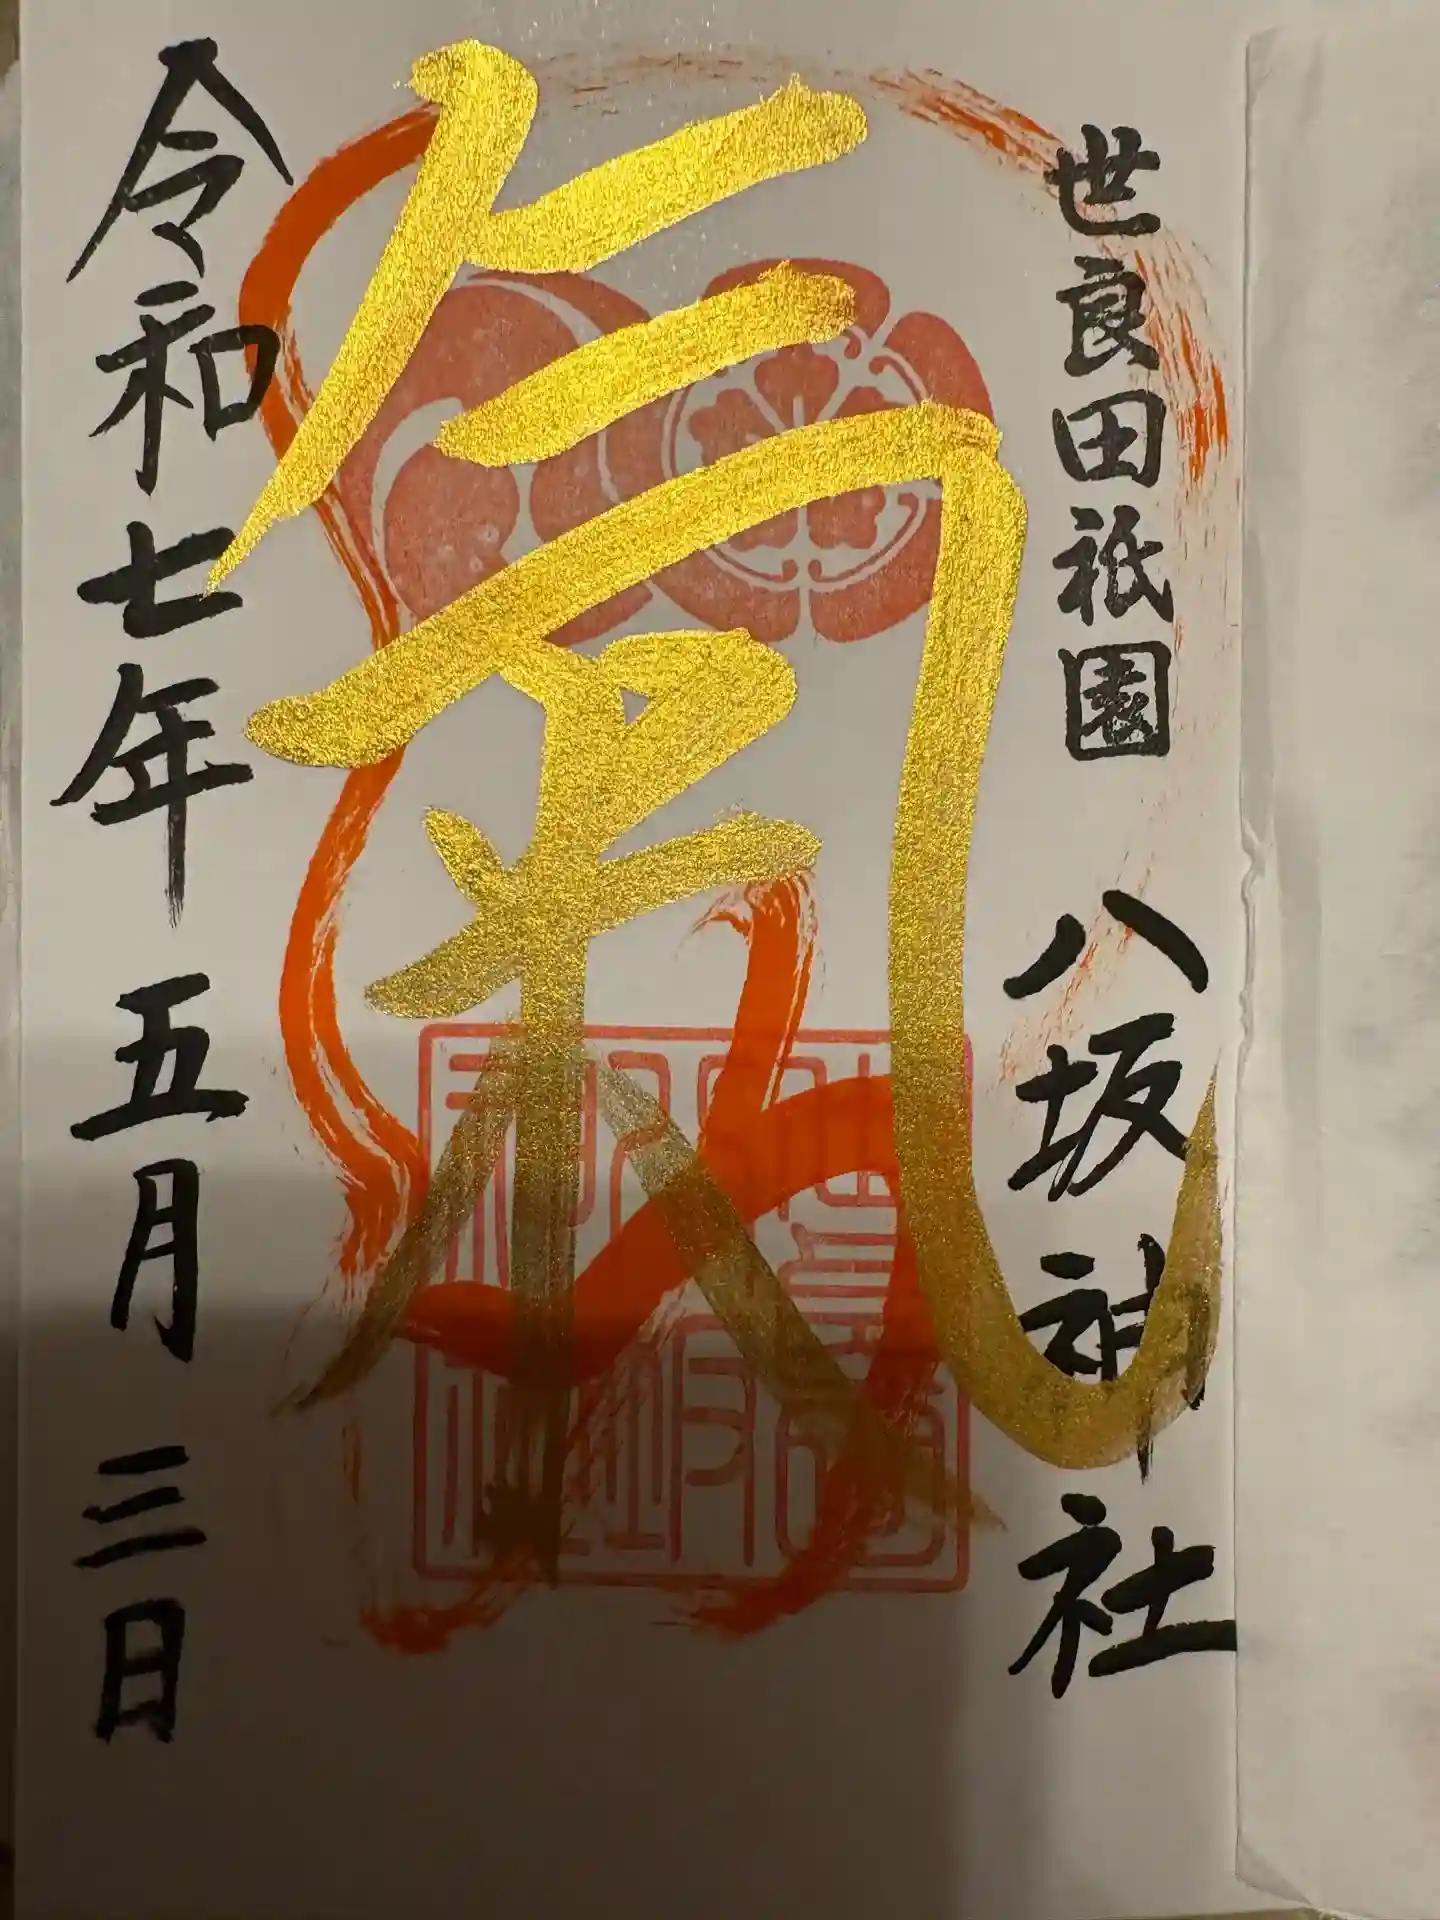 世良田祇園
八坂神社
氣
令和七年 五月 三日